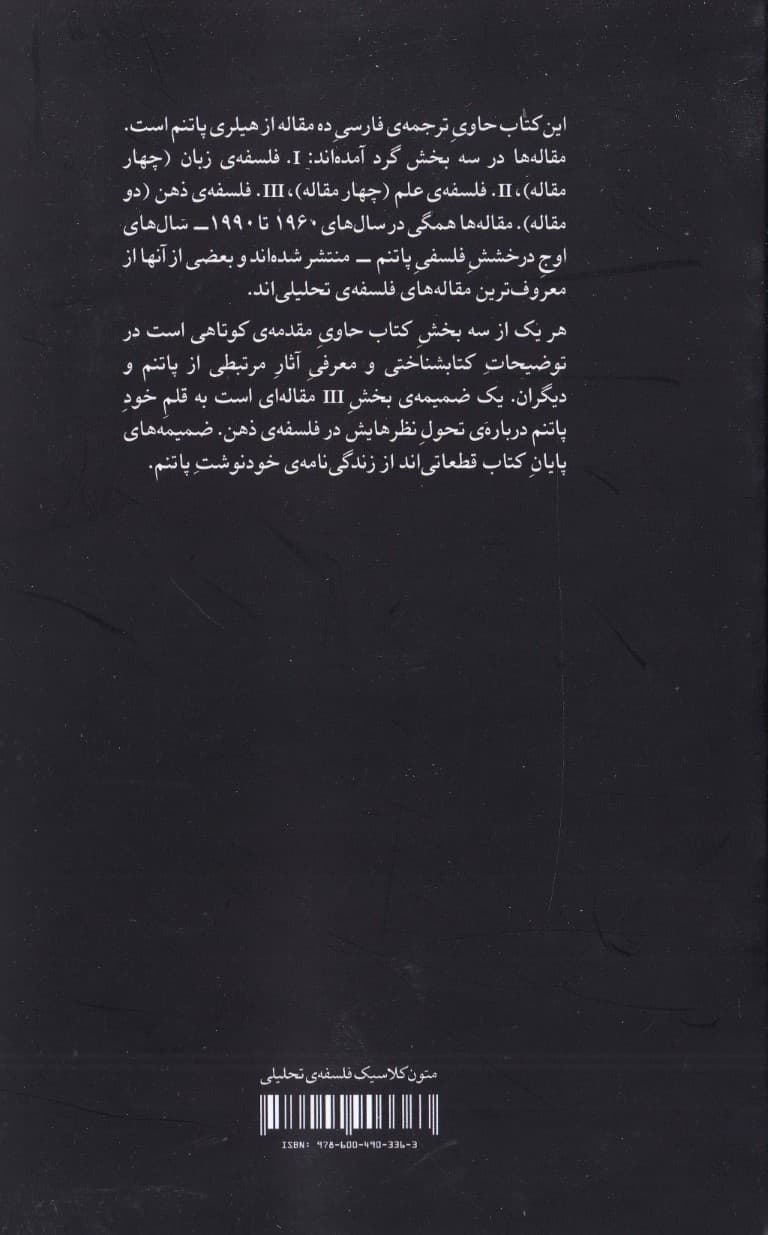 این کتاب حاویِ ترجمه‌ی فارسیِ ده مقاله از هیلری پاتنم است.
مقاله‌ها در سه بخش گرد آمده‌اند: I. فلسفه‌ی زبان (چهار
مقاله)، II. فلسفه‌ی علم (چهار مقاله)، III. فلسفه‌ی ذهن (دو
مقاله). مقاله‌ها همگی در سال‌های ۱۹۶۰ تا ۱۹۹۰ ــ سال‌های
اوجِ درخششِ فلسفیِ پاتنم ــ منتشر شده‌اند و بعضی از آنها از
معروف‌ترین مقاله‌های فلسفه‌ی تحلیلی‌اند.
هر یک از سه بخشِ کتاب حاویِ مقدمه‌ی کوتاهی است در
توضیحاتِ کتابشناختی و معرفیِ آثارِ مرتبطی از پاتنم و
دیگران. یک ضمیمه‌ی بخشِ III مقاله‌ای است به قلمِ خودِ
پاتنم درباره‌ی تحولِ نظرهایش در فلسفه‌ی ذهن. ضمیمه‌های
پایانِ کتاب قطعاتی‌اند از زندگی‌نامه‌ی خودنوشتِ پاتنم.
متون کلاسیک فلسفه‌ی تحلیلی
ISBN: 978-600-490-336-3